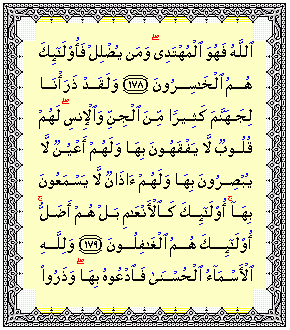 ٱللَّهُ فَهُوَ ٱلْمُهْتَدِى ۖ وَمَن يُضْلِلْ فَأُو۟لَـٰٓئِكَ
هُمُ ٱلْخَـٰسِرُونَ ﴿١٧٨﴾ وَلَقَدْ ذَرَأْنَا
لِجَهَنَّمَ كَثِيرًا مِّنَ ٱلْجِنِّ وَٱلْإِنسِ ۖ لَهُمْ
قُلُوبٌ لَّا يَفْقَهُونَ بِهَا وَلَهُمْ أَعْيُنٌ لَّا
يُبْصِرُونَ بِهَا وَلَهُمْ ءَاذَانٌ لَّا يَسْمَعُونَ
بِهَآ ۚ أُو۟لَـٰٓئِكَ كَٱلْأَنْعَـٰمِ بَلْ هُمْ أَضَلُّ ۚ
أُو۟لَـٰٓئِكَ هُمُ ٱلْغَـٰفِلُونَ ﴿١٧٩﴾ وَلِلَّهِ
ٱلْأَسْمَآءُ ٱلْحُسْنَىٰ فَٱدْعُوهُ بِهَا ۖ وَذَرُوا۟